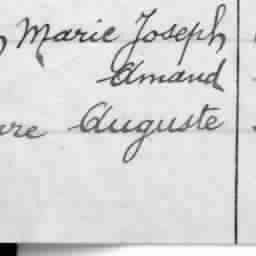 Marie Joseph
Amand
Auguste